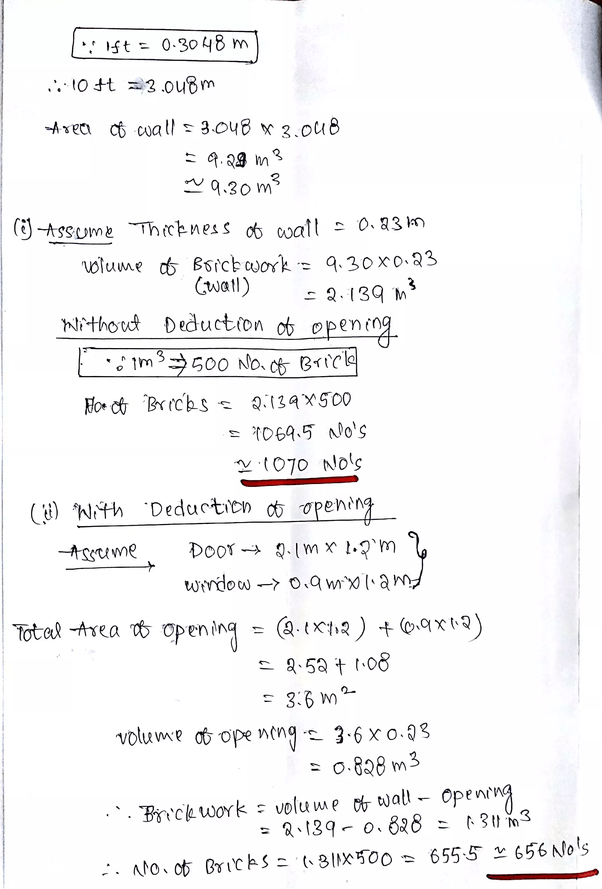 ∵ 1ft = 0.3048 m
∴ 10 ft = 3.048m
Area of wall = 3.048 × 3.048
= 9.29 m³
≃ 9.30 m³
(i) Assume Thickness of wall = 0.23m
Volume of Brickwork = 9.30×0.23
(wall) = 2.139 m³
Without Deduction of opening
∵ 1m³ ⇒ 500 No. of Brick
No. of Bricks = 2.139×500
= 1069.5 No's
≃ 1070 No's
(ii) With Deduction of opening
Assume Door → 2.1m × 1.2m
window → 0.9m×1.2m
Total Area of opening = (2.1×1.2) + (0.9×1.2)
= 2.52 + 1.08
= 3.6 m²
volume of opening = 3.6 × 0.23
= 0.828 m³
∴ Brickwork = volume of wall - opening
= 2.139 - 0.828 = 1.311 m³
∴ No. of Bricks = 1.311×500 = 655.5 ≃ 656 No's